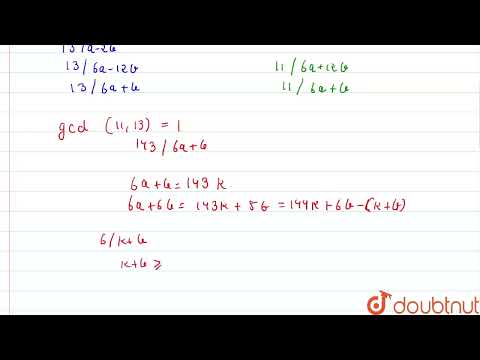 13/a-2b
13/6a-12b
13/6a+b
11/6a+12b
11/6a+b
gcd (11,13) = 1
143/6a+b
6a+b = 143k
6a+6b = 143k+5b = 144k+6b-(k+b)
6/k+b
k+b ≥
doubtnut